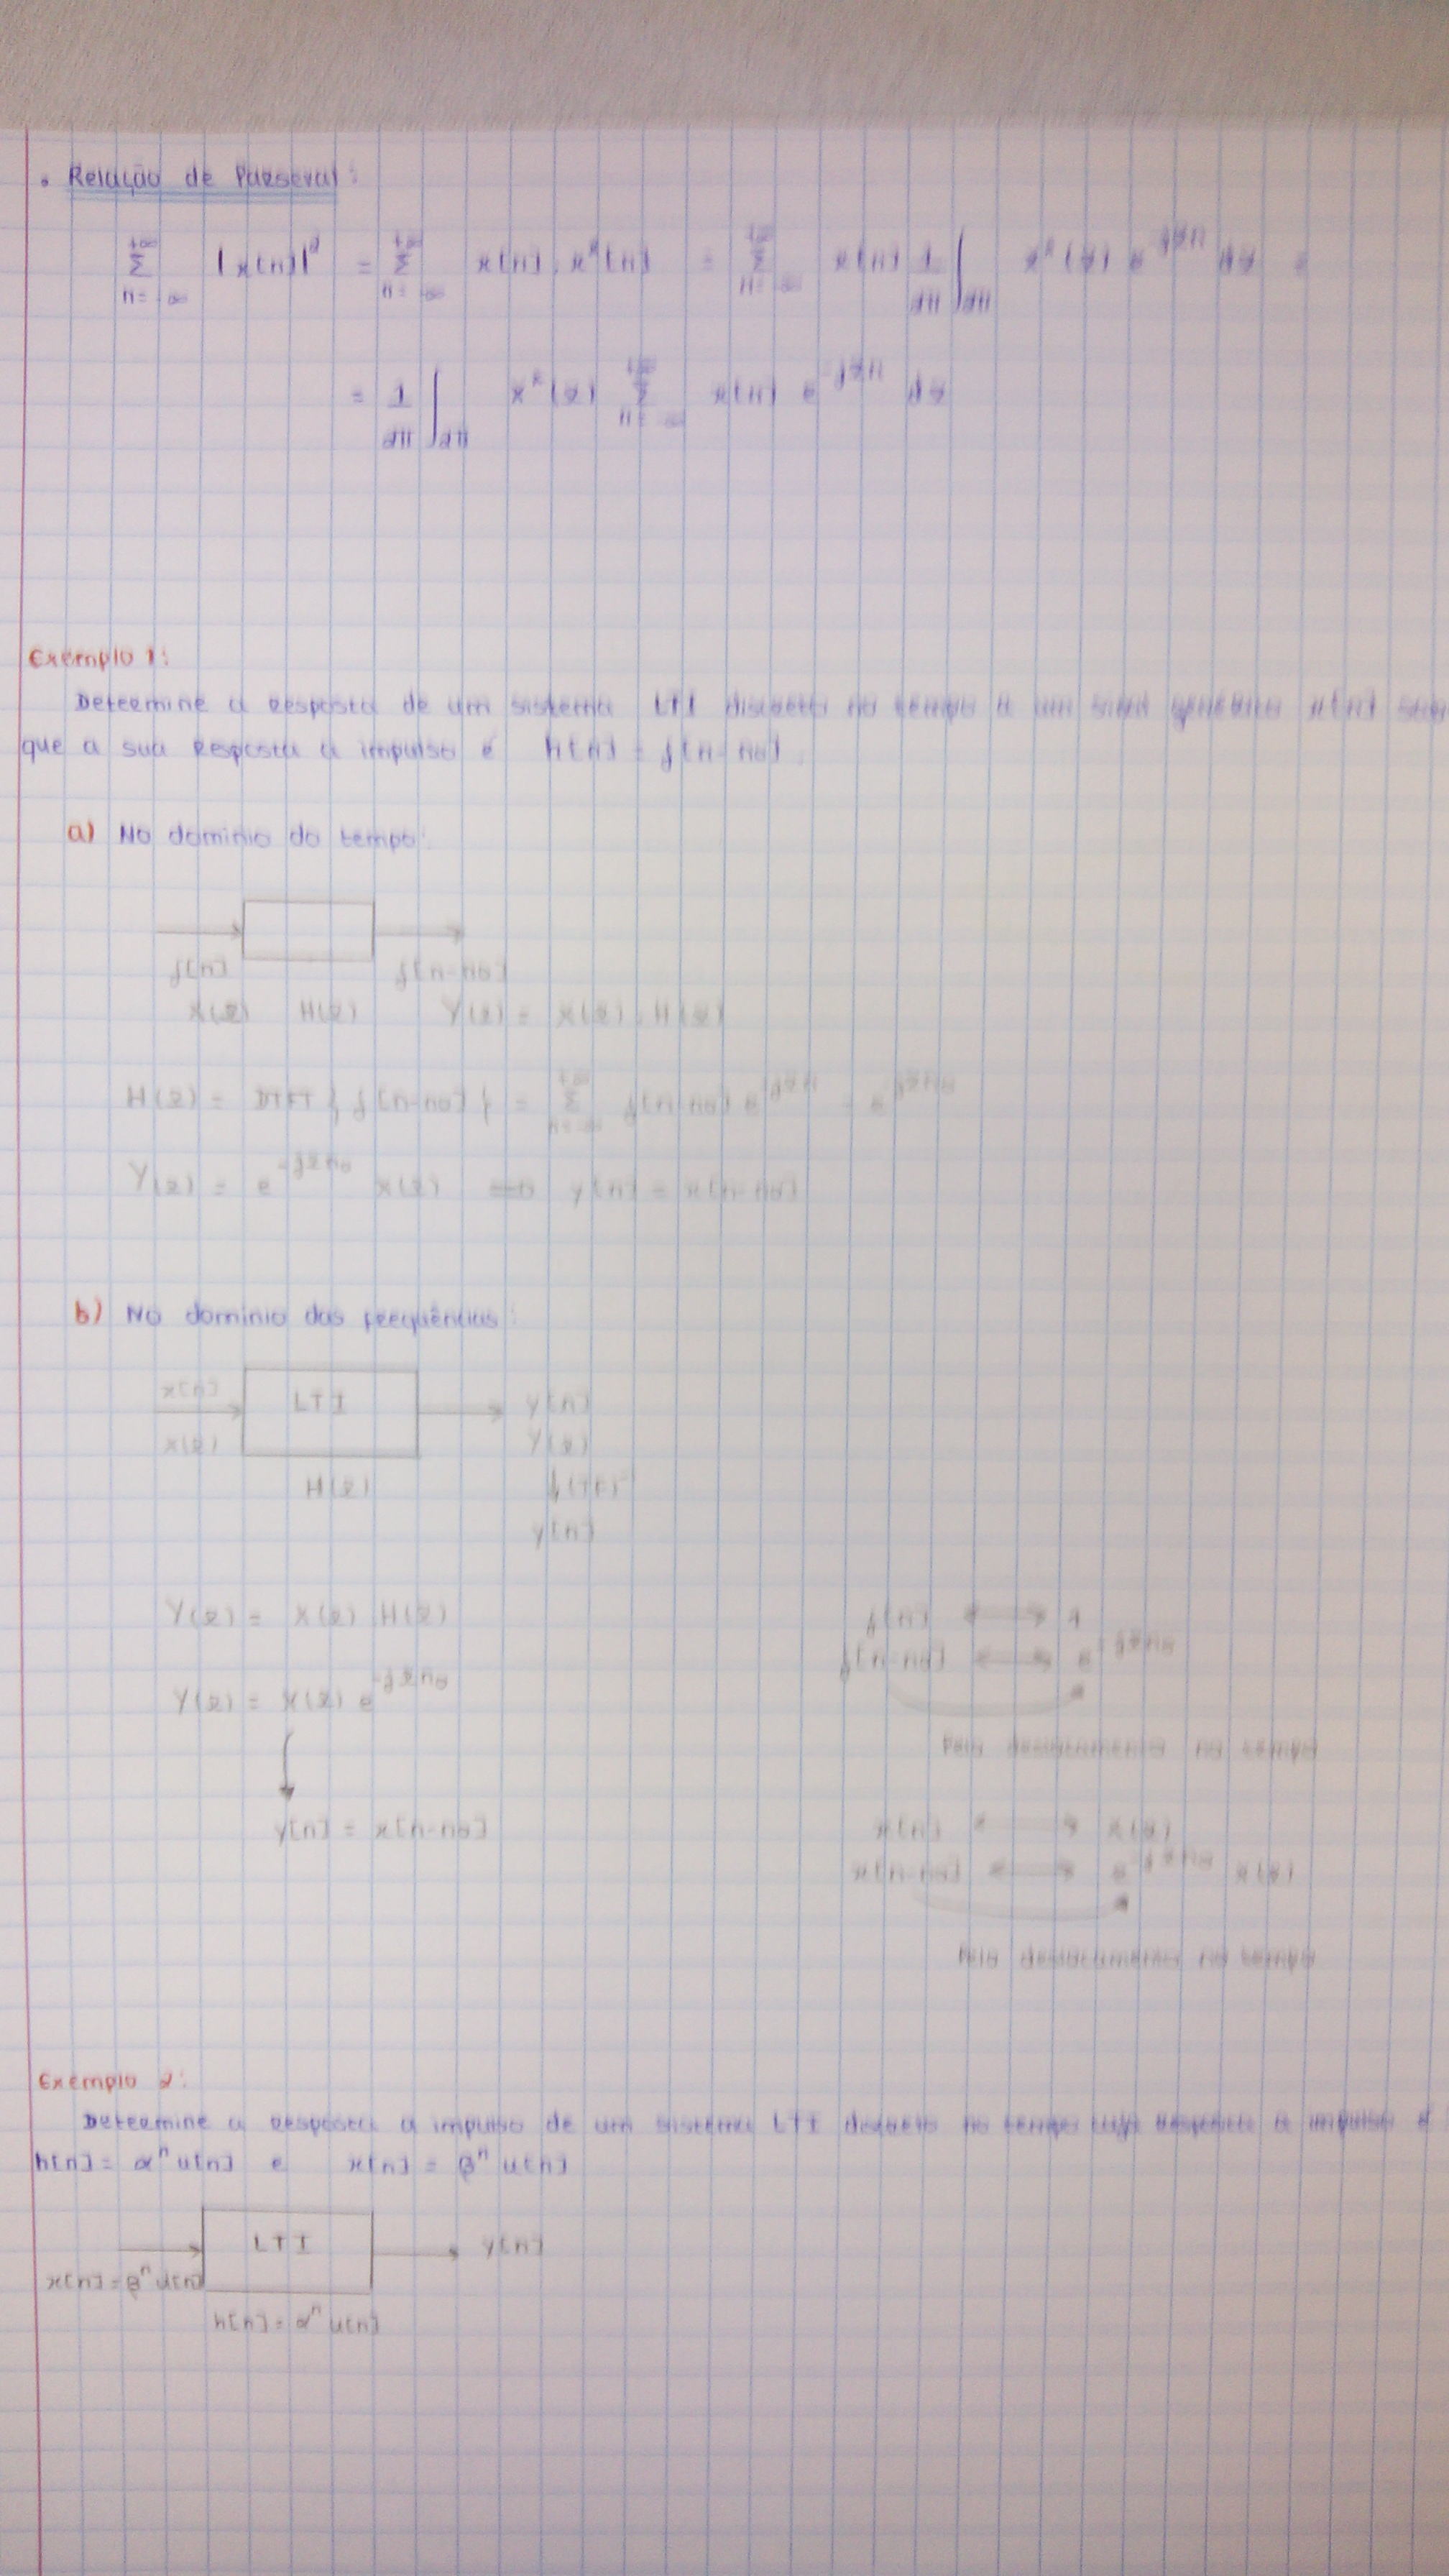 • Relação de Parseval:
+∞ Σ n=-∞ |x[n]|² = +∞ Σ n=-∞ x[n] . x*[n] = +∞ Σ n=-∞ x[n] 1/2π ∫2π X*(Ω) e^-jΩn dΩ =
= 1/2π ∫2π X*(Ω) +∞ Σ n=-∞ x[n] e^-jΩn dΩ
Exemplo 1:
Determine a resposta de um sistema LTI discreto no tempo a um sinal genérico x[n]
que a sua resposta a impulso é h[n] = δ[n-n0].
a) No domínio do tempo:
δ[n] δ[n-n0]
X(Ω) H(Ω) Y(Ω) = X(Ω) . H(Ω)
H(Ω) = DTFT { δ[n-n0] } = +∞ Σ n=-∞ δ[n-n0] e^-jΩn = e^-jΩn0
Y(Ω) = e^-jΩn0 X(Ω) => y[n] = x[n-n0]
b) No domínio das frequências:
x[n] LTI y[n]
X(Ω) Y(Ω)
H(Ω) ↓(TF)⁻¹
y[n]
Y(Ω) = X(Ω) H(Ω) δ[n] ↔ 1
δ[n-n0] ↔ e^-jΩn0
Y(Ω) = X(Ω) e^-jΩn0
Pelo deslocamento no tempo
y[n] = x[n-n0] x[n] ↔ X(Ω)
x[n-n0] ↔ e^-jΩn0 X(Ω)
Pelo deslocamento no tempo
Exemplo 2:
Determine a resposta a impulso de um sistema LTI discreto no tempo cuja resposta a impulso é
h[n] = α^n u[n] e x[n] = β^n u[n]
LTI y[n]
x[n] = β^n u[n]
h[n] = α^n u[n]